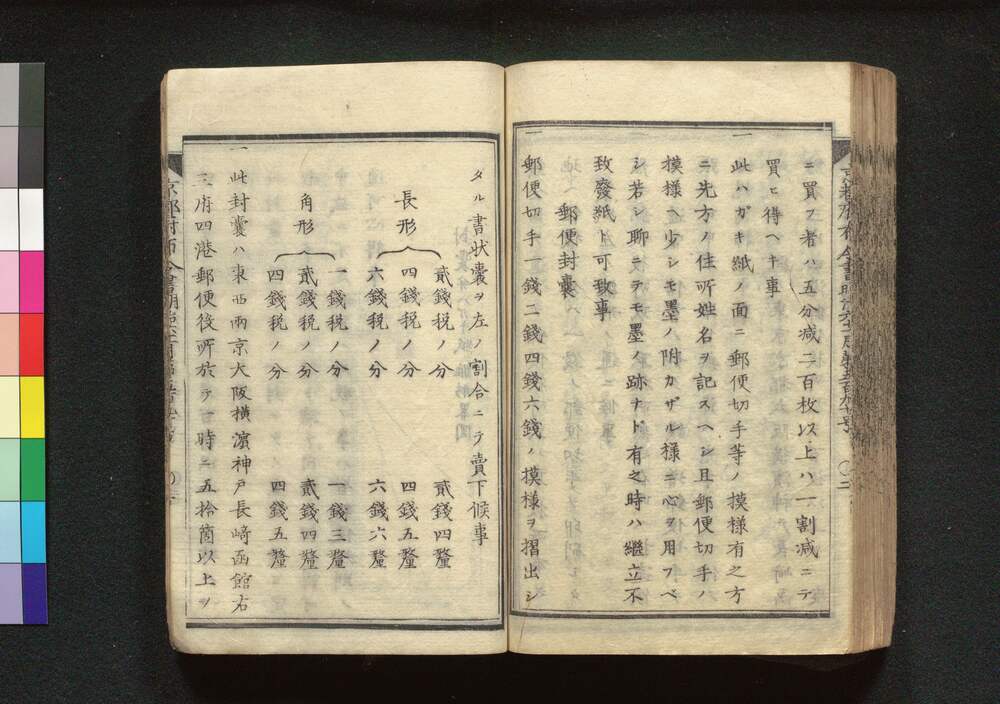 ニ買フ者ハ五分減二百枚以上ハ一割減ニテ
買ヒ得ヘキ事
一此ハガキ紙ノ面ニ郵便切手等ノ摸様有之方
ニ先方ノ住所姓名ヲ記スヘシ且郵便切手ノ
摸様ヘ少シモ墨ノ附カザル様ニ心ヲ用フベ
シ若シ聊ニテモ墨ノ跡ナド有之時ハ継立不
致廢紙ト可致事
郵便封嚢
一郵便切手一錢二錢四錢六錢ノ摸様ヲ摺出シ
タル書状嚢ヲ左ノ割合ニテ賣下候事
長形
貳錢税ノ分 貳錢四釐
四錢税ノ分 四錢五釐
六錢税ノ分 六錢六釐
角形
一錢税ノ分 一錢三釐
貳錢税ノ分 貳錢四釐
四錢税ノ分 四錢五釐
一此封嚢ハ東西両京大阪横濱神戸長崎函館右
三府四港郵便役所於テ一時ニ五拾箇以上ヲ